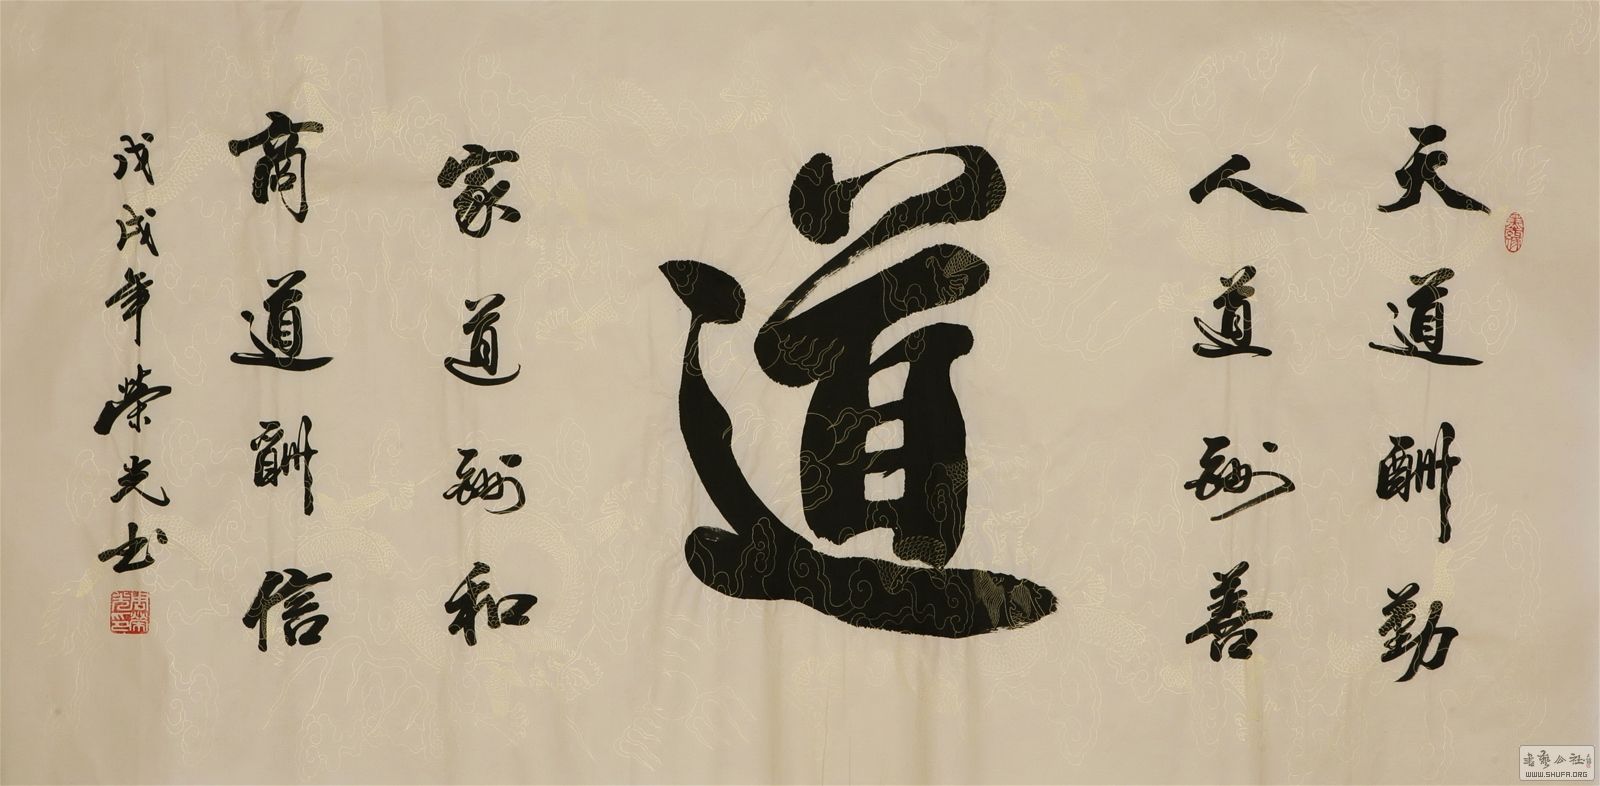 天道酬勤
人道酬善
道
家道酬和
商道酬信
戊戌年榮光书
WWW.SHUFA.ORG